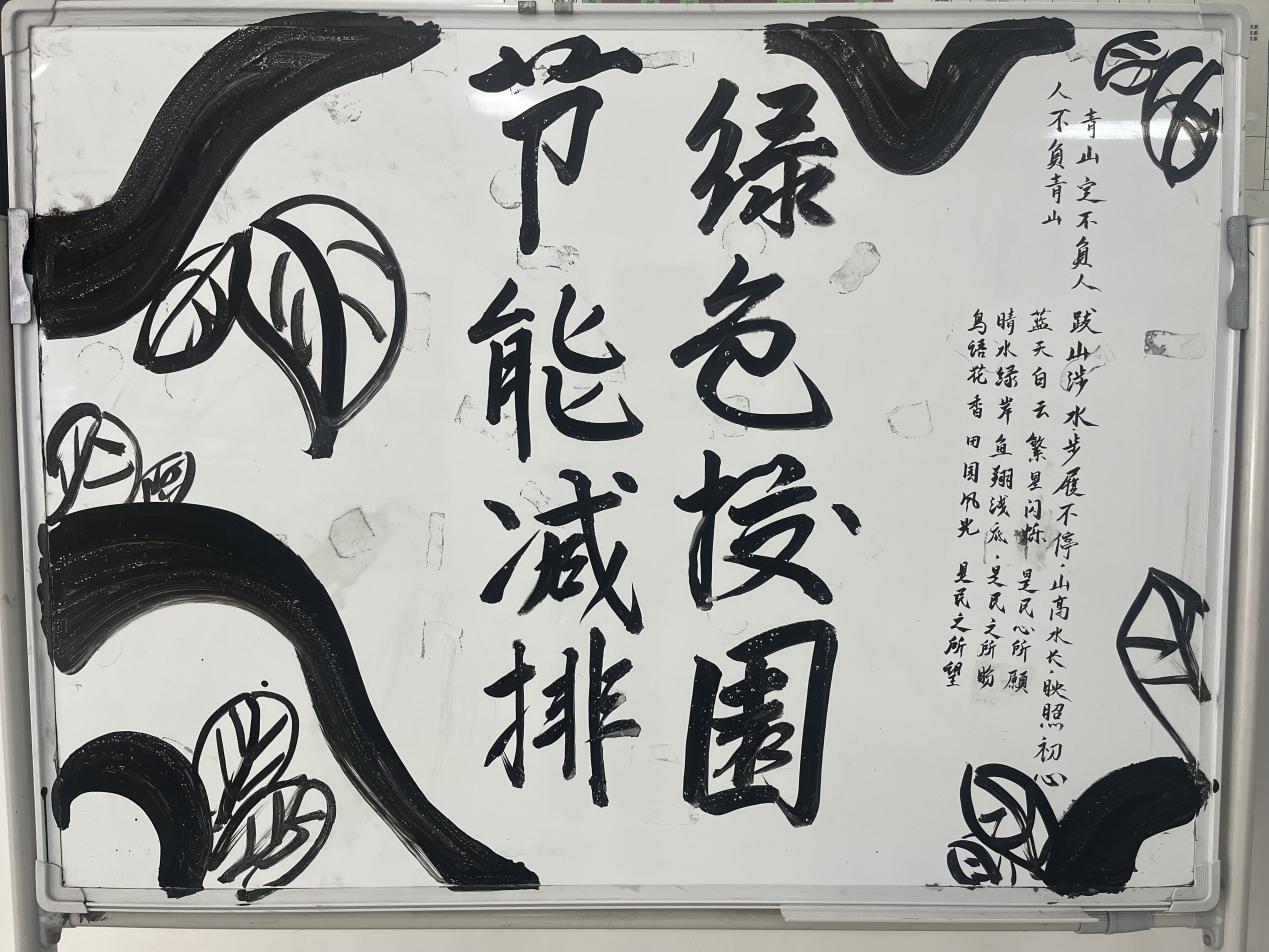 青山定不負人
人不負青山
跋山涉水·步履不停·山高水长·映照初心
蓝天白云 繁星闪烁 是民心所願
晴水绿岸 鱼翔浅底·是民之所盼
鸟语花香 田园风光 是民之所望
绿色校園
节能减排